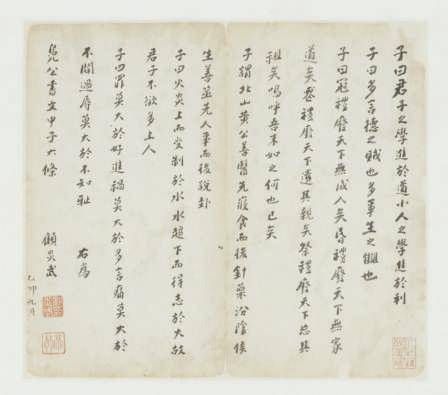 子曰君子之學進於道小人之學進於利
子曰多言德之賊也多事生之讎也
子曰冠禮廢天下無成人矣昏禮廢天下無家
道矣喪禮廢天下遺其親矣祭禮廢天下忘其
祖矣嗚呼吾末如之何也已矣
子謂北山黃公善醫先寢食而後針藥汾陰侯
生善筮先人事而後說卦
子曰火炎上而受制於水水趨下而得志於火故
君子不欲多上人
子曰罪莫大於好進禍莫大於多言痛莫大於
不聞過辱莫大於不知恥 右為
公書文中子六條 顧炎武
乙卯九月